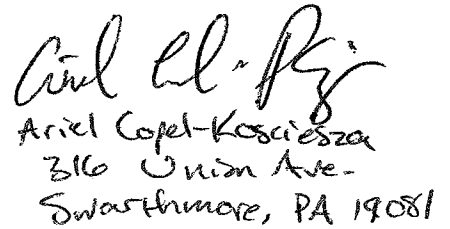 Ariel Copel-Kosciesza
316 Union Ave.
Swarthmore, PA 19081